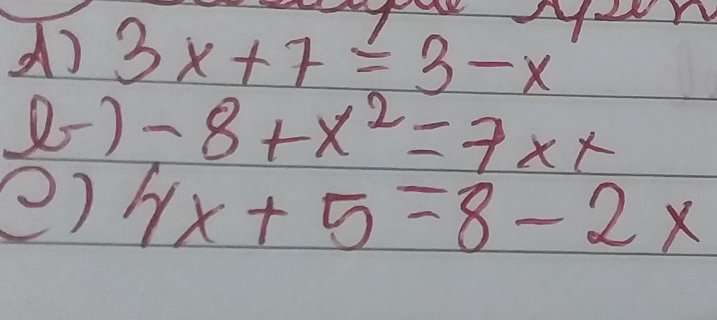 A) 3x + 7 = 3 - x
b) - 8 + x² = 7x +
C) 4x + 5 = 8 - 2x